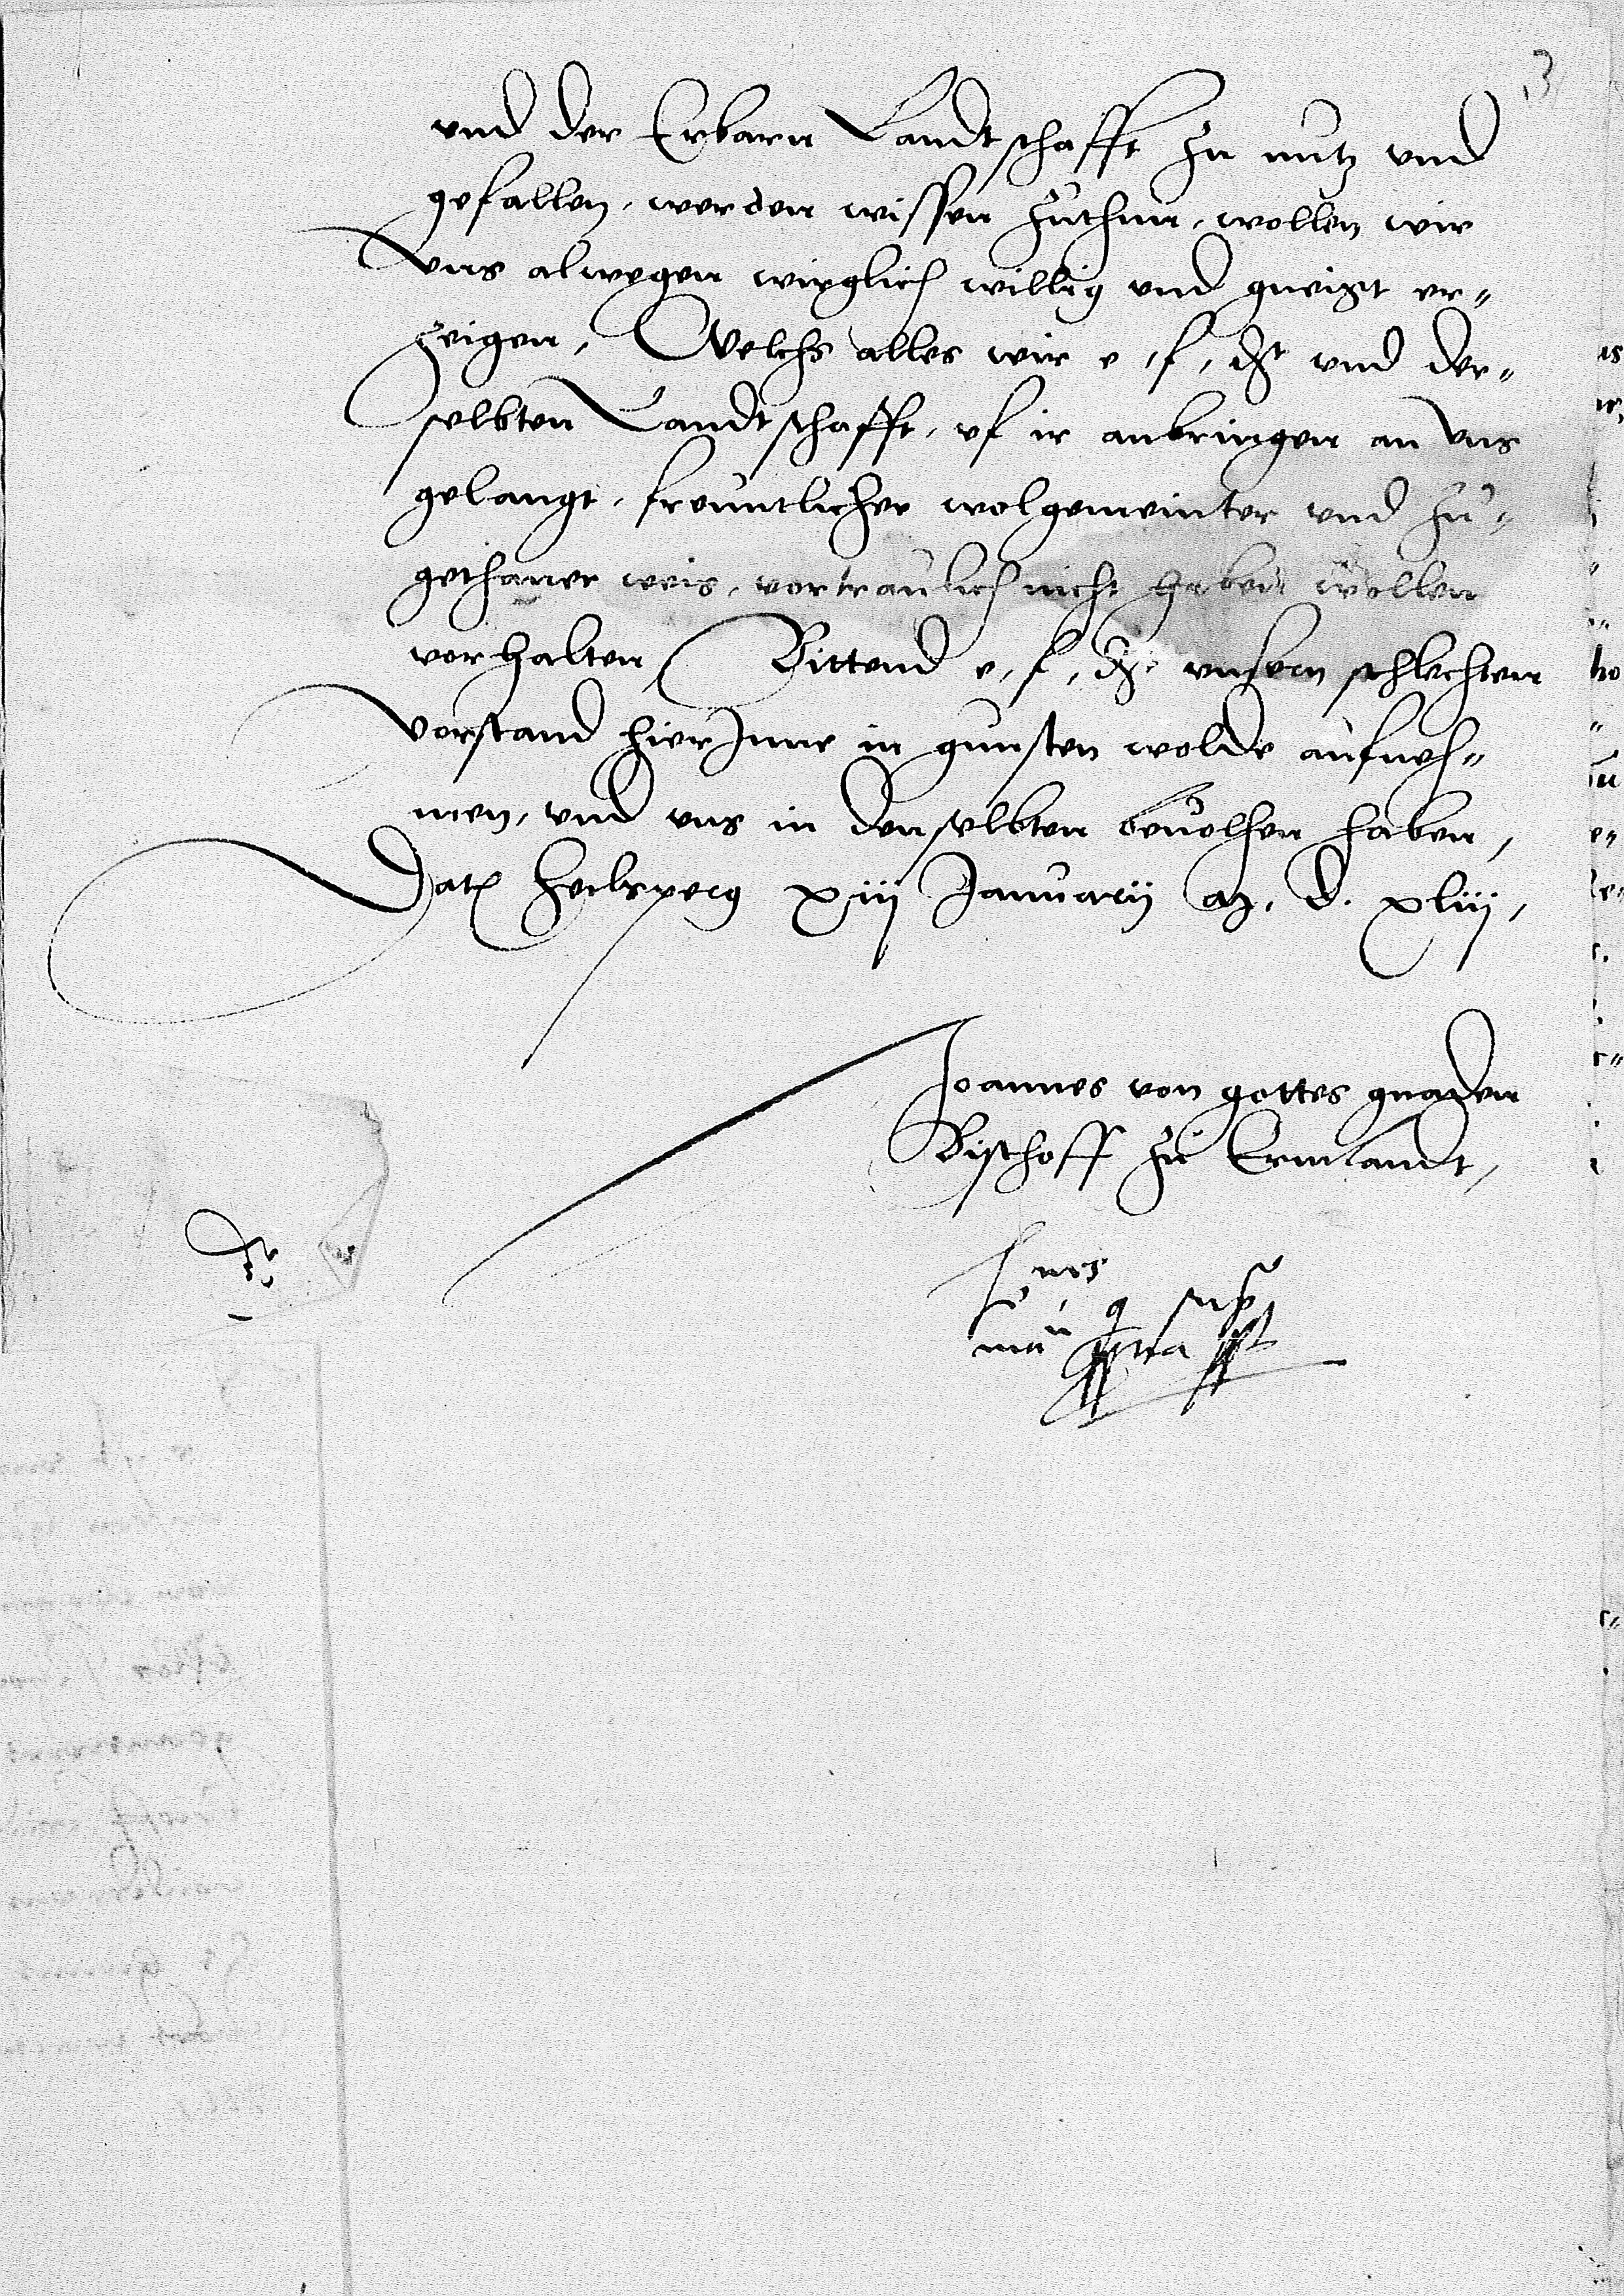 3
und der Erbarn Landtschafft zu nutz und
gefallen, werden wissen zuthun, wollen wir
Uns alwegen wirglich willig und gneigt er=
zeigen, Welchs alles wir e, f, dt und der=
selbten Landtschafft, uf ir anbringen an Uns
gelangt, freuntlicher wolgemeinter und zu=
gethaner weis, vortraulich nicht haben wollen
vorhalten, Bittend e, f, dt unsern schlechten
Vorstand hierJnne in gunsten wolde aufneh=
men, und uns in denselbten bevolhen haben,
Dat Heilsperg xiij Januarij A, d. xliij,
Joannes von gottes gnaden
Bisschoff zu Ermlandt,